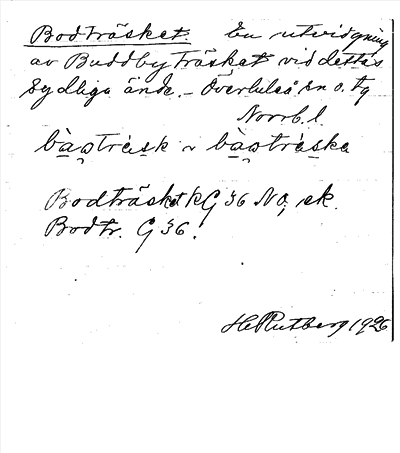 Bodträsket. En utvidgning
av Buddbyträsket vid dettas
sydliga ände. - Överluleå sn o. tg
Norrb. l.
bàɷtràsk ~ bàɷtràska
Bodträsket kG 36 NO, ek.
Bodtr. G 36.
H Rutberg 1926